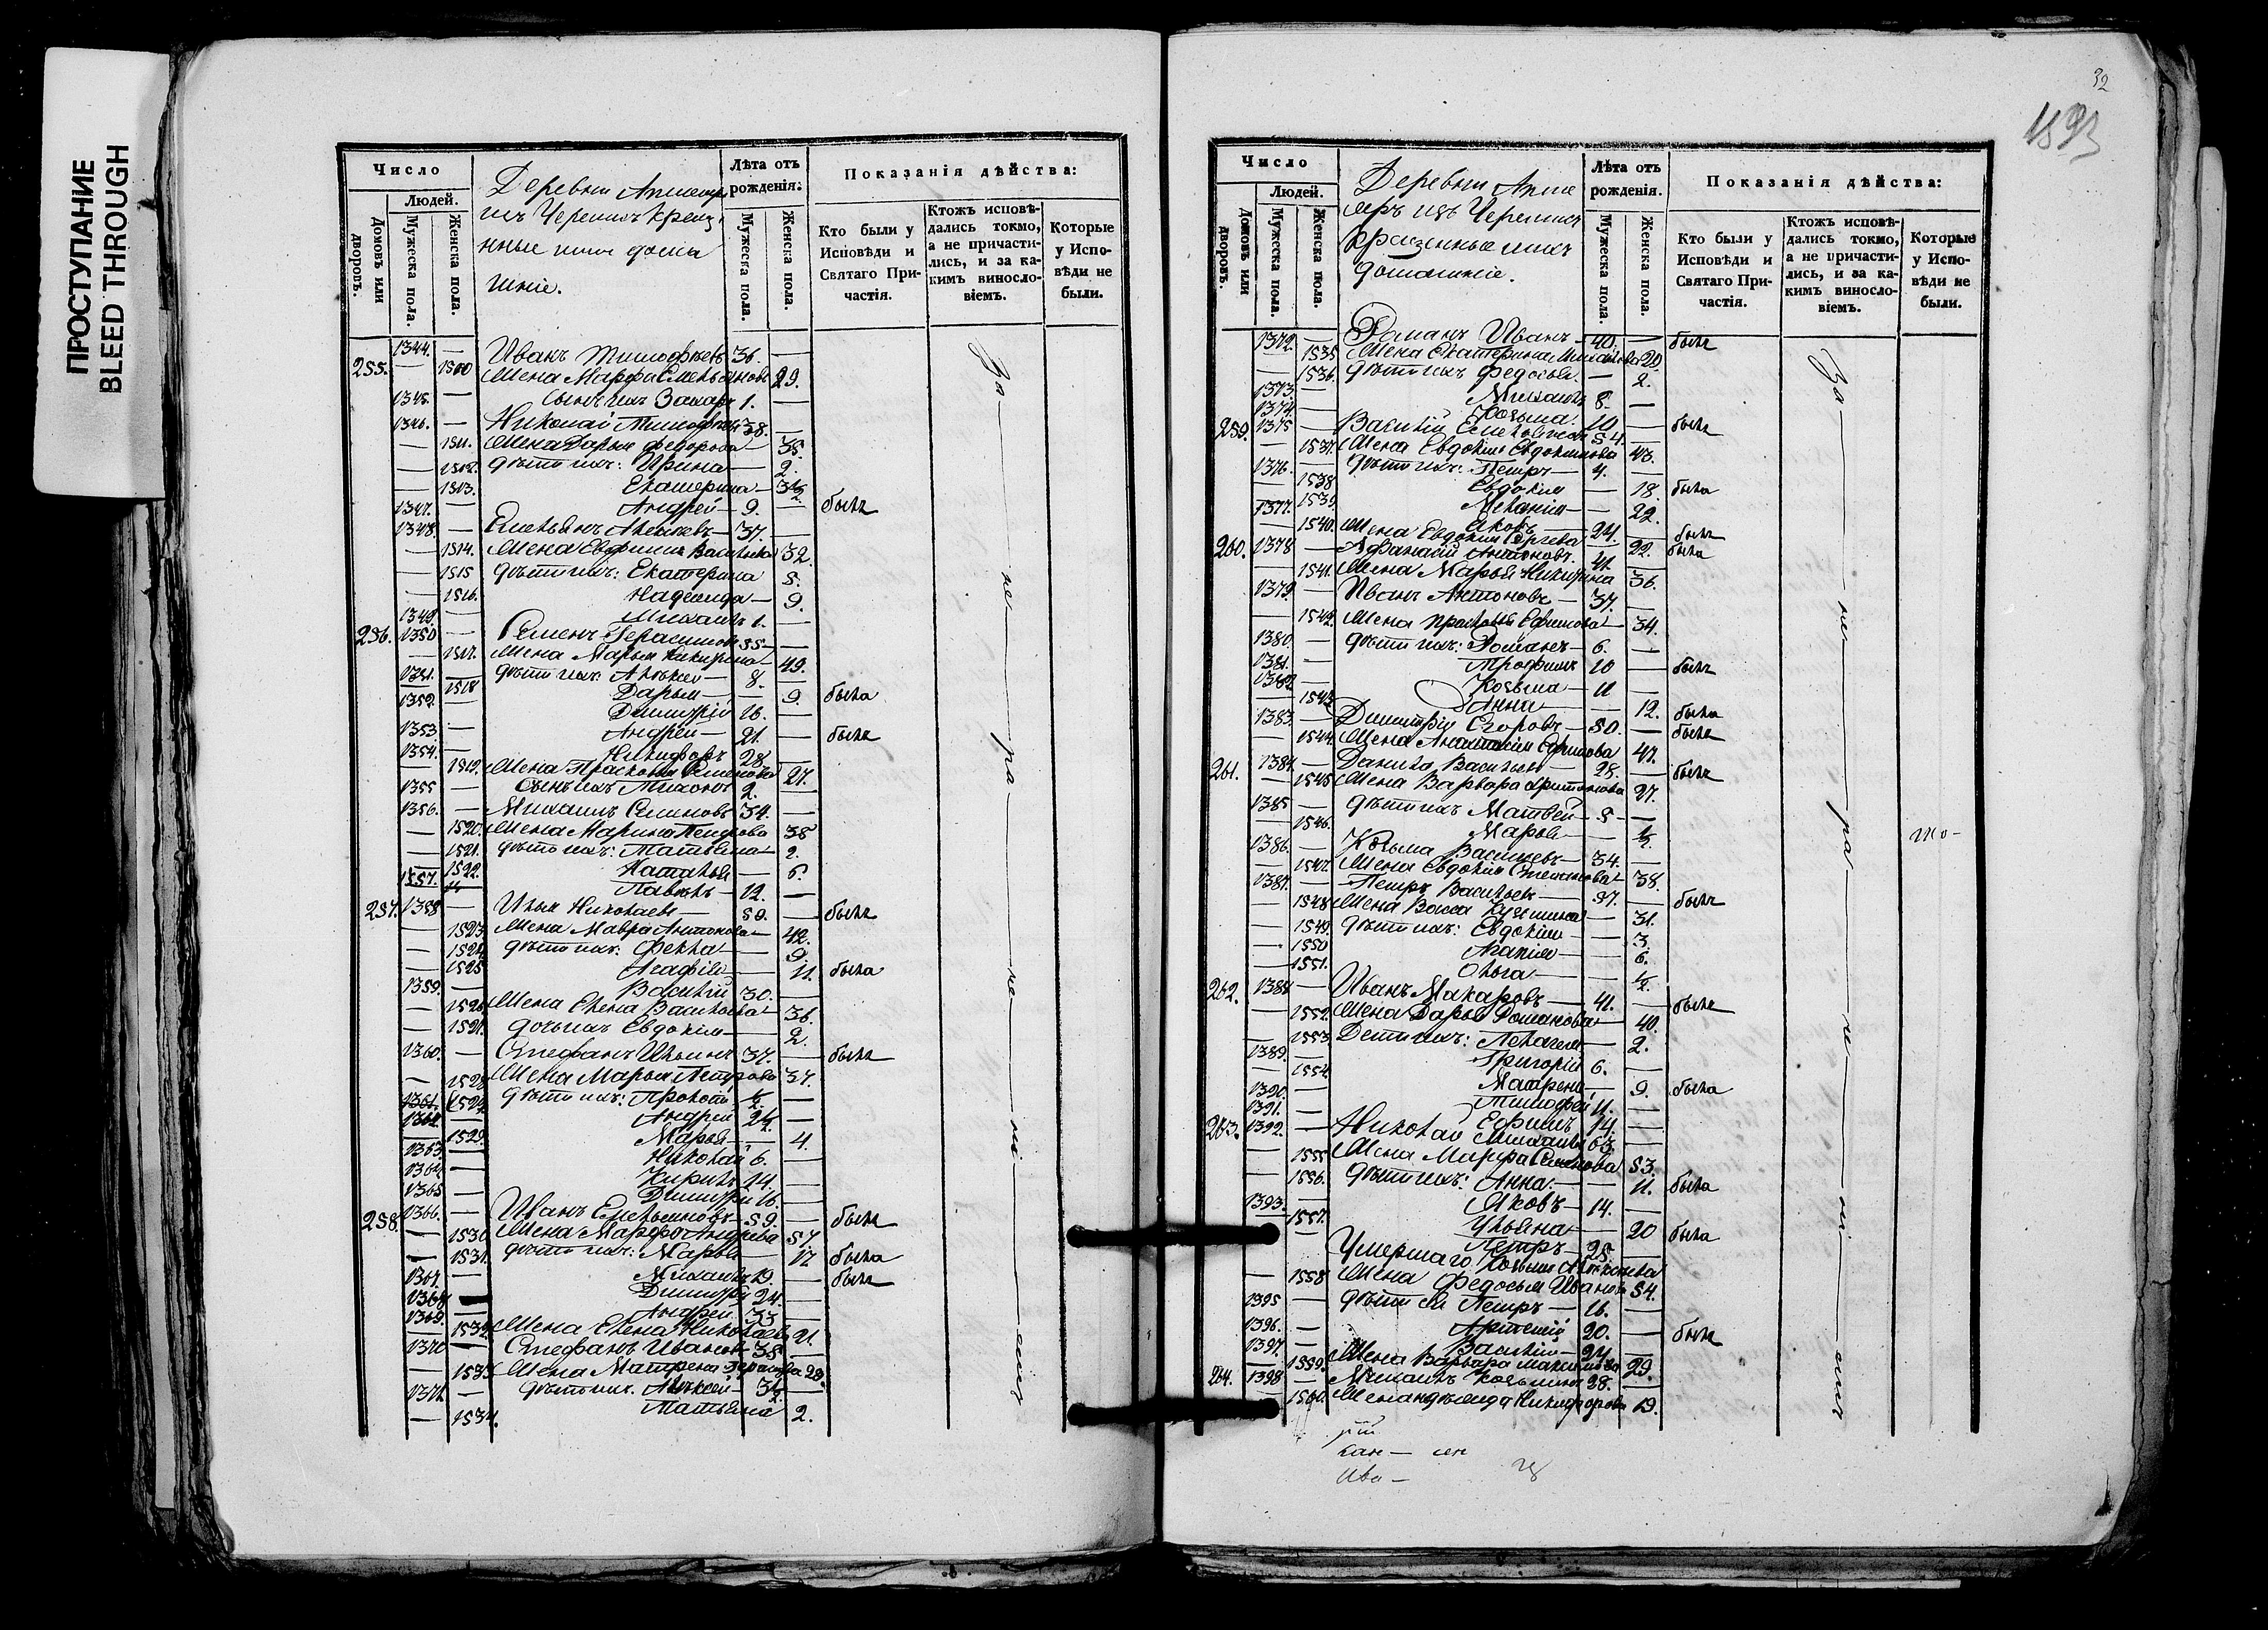 ПРОСТУПАНИЕ
BLEED THROUGH
Число
Людей.
Домовъ или дворовъ.
Мужеска пола.
Женска пола.
Деревни
Черемисъ Креще
нные ихъ дома
шніе.
Лѣта отъ рожденія:
Мужеска пола.
Женска пола.
Показанія дѣйства:
Кто были у Исповѣди и Святаго Причастія.
Ктожъ исповѣдались токмо, а не причастились, и за какимъ винословіемъ.
Которые у Исповѣди не были.
1344. — Иванъ Тимофѣевъ 36. —
255. — 1510 Жена Марфа Емельянова 29.
1345. — Сынъ ихъ Захаръ 1. —
1346. — Николай Тимофѣевъ 38. —
— 1511. Жена Дарья Федорова — 35.
— 1512. дѣти ихъ: Ирина — 2.
— 1513. Екатерина — 3½
1347. — Андрей — 9. — былъ
1348. — Емельянъ Алексѣевъ — 37. —
— 1514. Жена Евфимія Васильева 32.
— 1515 дѣти ихъ: Екатерина 5.
— 1516. Надежда — 9.
1349. — Михаилъ 1. —
256. 1350 — Семенъ Герасимовъ 55 —
— 1517. Жена Марья Никифорова — 49.
1351. — дѣти ихъ: Алексѣй — 8.
1518 Дарья — 9. была
1352. — Димитрій 16. —
1353. — Андрей — 21. — былъ
1354. — Никифоръ 28. —
— 1519. Жена Прасковья Семенова 27.
1355 — Сынъ ихъ Тихонъ 2. —
1356. — Михаилъ Семеновъ 34. —
— 1520. Жена Марина Петрова 38
— 1521. дѣти ихъ: Татьяна — 2.
— 1522. Наталья — 6.
1357. — Павелъ — 12. —
257. 1358 — Илья Николаевъ — 50. — былъ
— 1523. Жена Мавра Антонова — 42.
— 1524 дѣти ихъ: Фекла — 9.
— 1525 Агафія — 11. была
1359. — Василій 30. —
— 1526 Жена Елена Васильева — 36.
— 1527. дочь ихъ Евдокія — 2.
1360. — Стефанъ Ильинъ 37. — былъ
— 1528 Жена Марья Петрова 37.
1361. 1529 дѣти ихъ: Прокопій ½ —
1362. — Андрей 2½ —
1529. Марья — 4.
1363 — Николай 6. —
1364 — Кирилъ 14. —
1365 — Димитрій 16 —
258. 1366. — Иванъ Емельяновъ — 59. — былъ
— 1530 Жена Марфа Андреева 57.
— 1531. дѣти ихъ: Марья — 17 была
1367. — Михаилъ 19. — былъ
1368 — Димитрій 24. —
1369. — Андрей 33 —
1532 Жена Елена Николаева 21.
1370 — Стефанъ Ивановъ 35 —
— 1533 Жена Матрена 28.
1371. — дѣти ихъ. Алексѣй — 3½ —
— 1534. Татьяна 2.
За — не — ра — че — ні — емъ
32
1893
Число
Людей.
Домовъ или дворовъ.
Мужеска пола.
Женска пола.
Деревни
изъ Черемисъ
Крещенные ихъ
домашніе.
Лѣта отъ рожденія.
Мужеска пола.
Женска пола.
Показанія дѣйства:
Кто были у Исповѣди и Святаго Причастія.
Ктожъ исповѣдались токмо, а не причастились, и за какимъ винословіемъ.
Которые у Исповѣди не были.
1372. — Романъ Иванъ — 40. — былъ
1535 Жена Екатерина Михайлова 20.
— 1536. дѣти ихъ Федосья. — 2.
1373. — Михаилъ 8. —
1374. — Козьма. 10 —
259. 1375 — Василій Емельяновъ 54. — былъ
— 1537. Жена Евдокія Евдокимова 43.
1376. — дѣти ихъ: Петръ — 4. —
— 1538 Евдокія — 18. была
1539. Меланія — 22.
1377. — Яковъ — 24. — былъ
— 1540. Жена Евдокія Сергѣева 22. была
260. 1378 — Афанасій Антоновъ. 41. —
— 1541. Жена Марья Никитина 36.
1379. — Иванъ Антоновъ — 37. —
— 1542. Жена Прасковья Ефимова — 34.
1380. — дѣти ихъ: Романъ — 6. —
1381. — Трофимъ 10 — былъ
1382 — Козьма — 11 —
— 1543. Анна — 12. была
1383. — Димитрій Егоровъ — 50. — былъ
— 1544. Жена Анастасія Ефимова 47.
261. 1384. — Данило Васильевъ — 28. — былъ
— 1545 Жена Варвара Аритонова 27.
1385 — дѣти ихъ Матвей — 5 —
— 1546. Марья — ½.
1386. — Козьма Васильевъ — 34. —
— 1547. Жена Евдокія Степанова — 38.
1387. — Петръ Васильевъ — 37. — былъ
— 1548 Жена Васса Кузьмина — 31.
— 1549. дѣти ихъ: Евдокія — 3.
— 1550 Агапія — 6.
— 1551. Ольга — ½.
262. 1388 — Иванъ Макаровъ — 41. — былъ
— 1552. Жена Дарья Романова — 40.
— 1553 Дети ихъ: Пелагея — 2.
1389. — Григорій 6. —
— 1554. Матрена — 9. была
1390. — Тимофей 11. —
1391. — Ефимъ 14. —
263. 1392. — Николай Михаиловъ 63. —
— 1555 Жена Марфа Семенова 53.
— 1556. дѣти ихъ: Анна. — 11. была
1393. — Яковъ — 14. —
— 1557. Ульяна — 20 была
— Петръ — 25. —
Умершаго Козьмы Алексѣева
— 1558 Жена Федосья Иванова 54.
1395 — дѣти ея Петръ — 16. —
1396. — Артемій 20. — былъ
1397. — Василій — 24. —
— 1559. Жена Варвара Максимова 29.
264. 1398 — Михаилъ Козьминъ 28. —
— 1560. Жена Надежда Никифорова 19.
За — не — ра — че — ні — емъ
то —